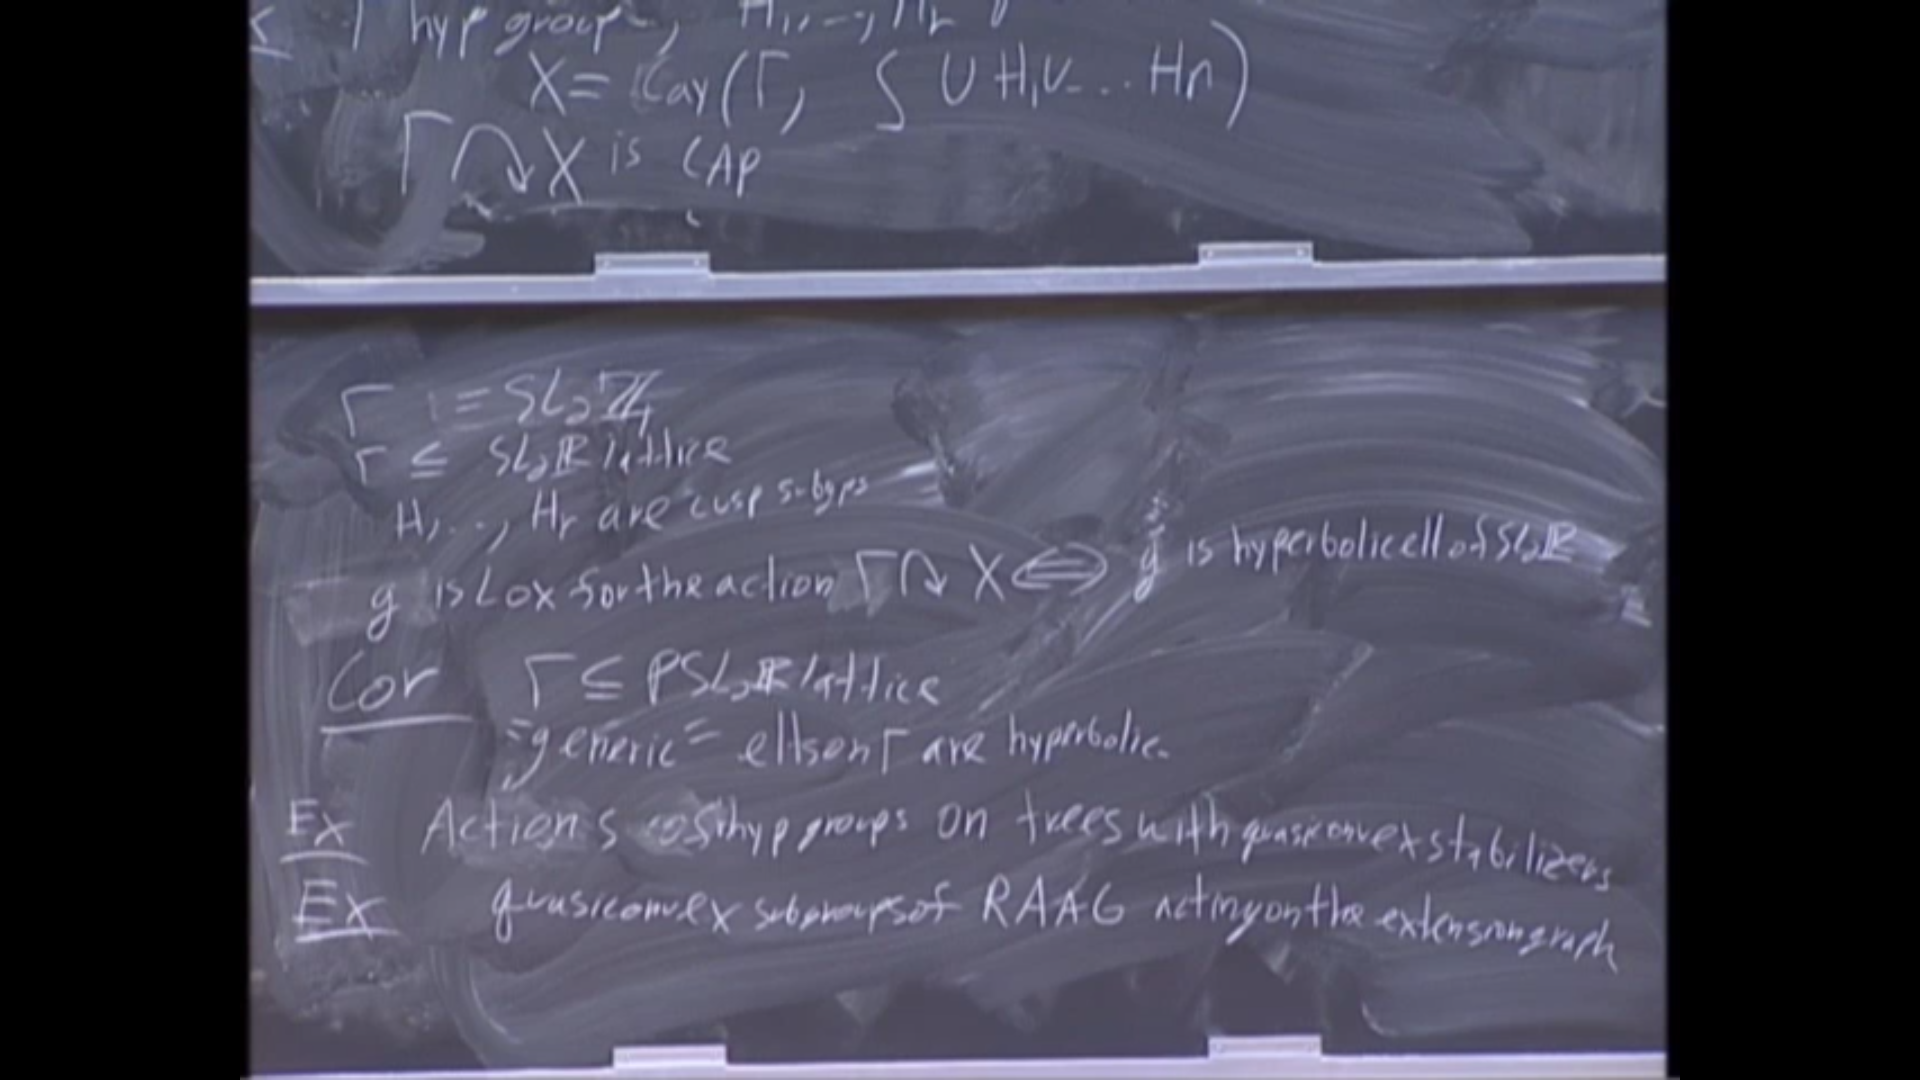 Γ hyp group, H1, ..., Hr
X = Cay(Γ, S ∪ H1 ∪ ... Hn)
Γ ↷ X is CAP
Γ := SL2ℤ
Γ ≤ SL2ℝ lattice
H1, .., Hr are cusp subgps
g is Lox for the action Γ ↷ X ⟺ g is hyperbolic ell of SL2ℝ
Cor Γ ≤ PSL2ℝ lattice
"generic" elts on Γ are hyperbolic.
Ex Actions of hyp groups on trees with quasiconvex stabilizers
Ex quasiconvex subgroups of RAAG acting on the extension graph